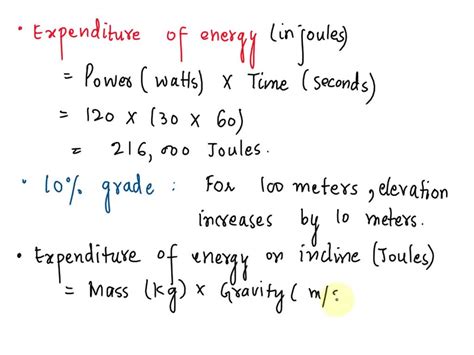 • Expenditure of energy (in joules)
= Power (watts) × Time (seconds)
= 120 × (30 × 60)
= 216,000 Joules.
• 10% grade : For 100 meters, elevation
increases by 10 meters.
• Expenditure of energy on incline (Joules)
= Mass (kg) × Gravity ( m/s